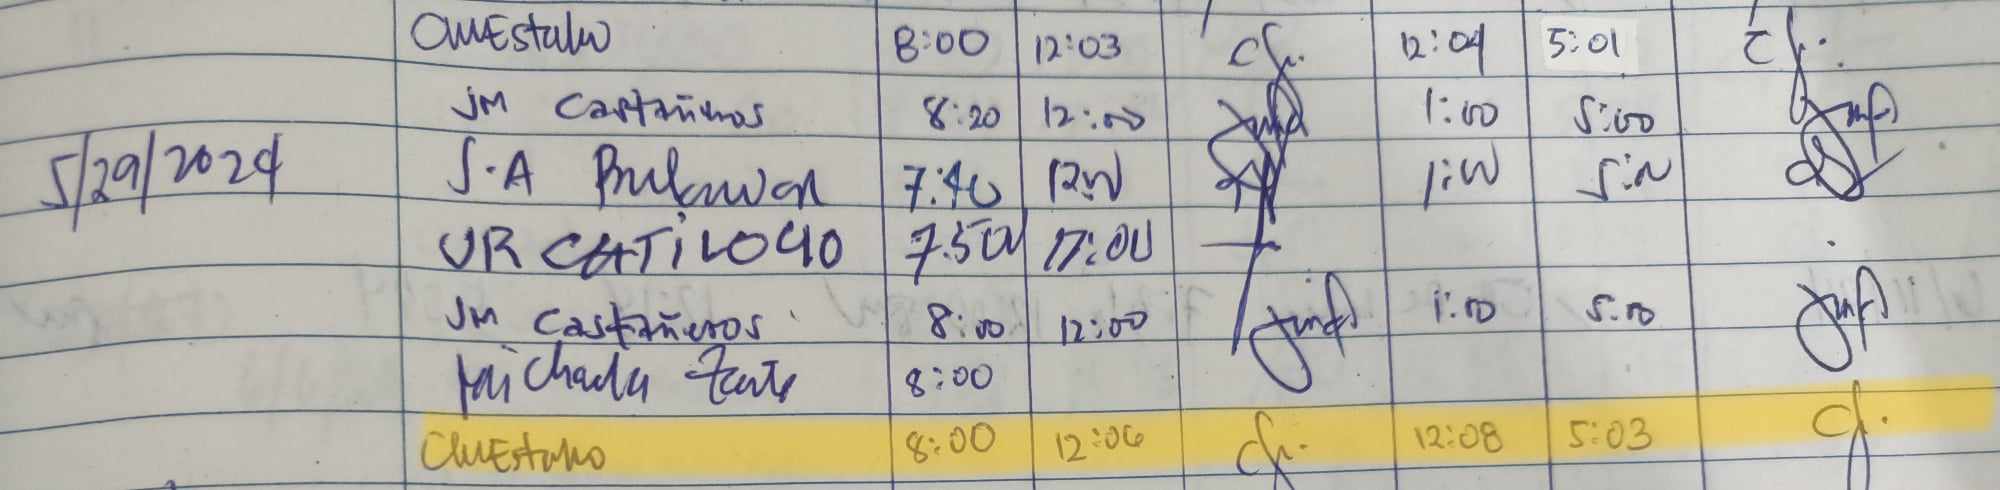 CMEstalw 8:00 12:03 Cf. 12:04 5:01 Cf.
JM Castañeros 8:20 12:00 1:00 5:00
5/29/2024 S.A Bulawan 7:40 12:00 1:00 5:00
VR CATILOGO 7:50 12:00
JM Castañeros 8:00 12:00 1:00 5:00
8:00
CMEstalw 8:00 12:06 Cf. 12:08 5:03 Cf.